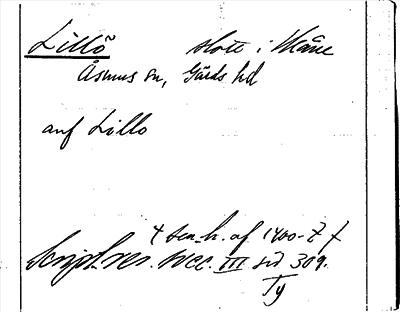 Lillö slott i Skåne
Åsmus sn, Gärds hd
auf Lillo
4 sen. h. af 1400-t
Script. rer. svec. III sid 309.
Ty